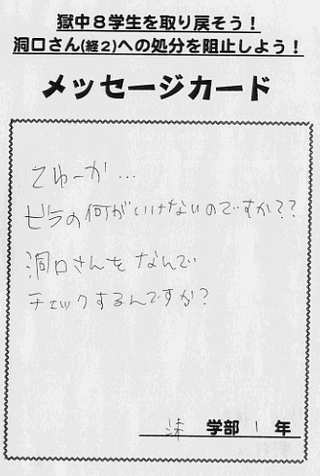 獄中8学生を取り戻そう！
洞口さん(経２)への処分を阻止しよう！
メッセージカード
てゆーか…
ビラの何がいけないのですか??
洞口さんをなんで
チェックするんですか?
法 学部 1 年